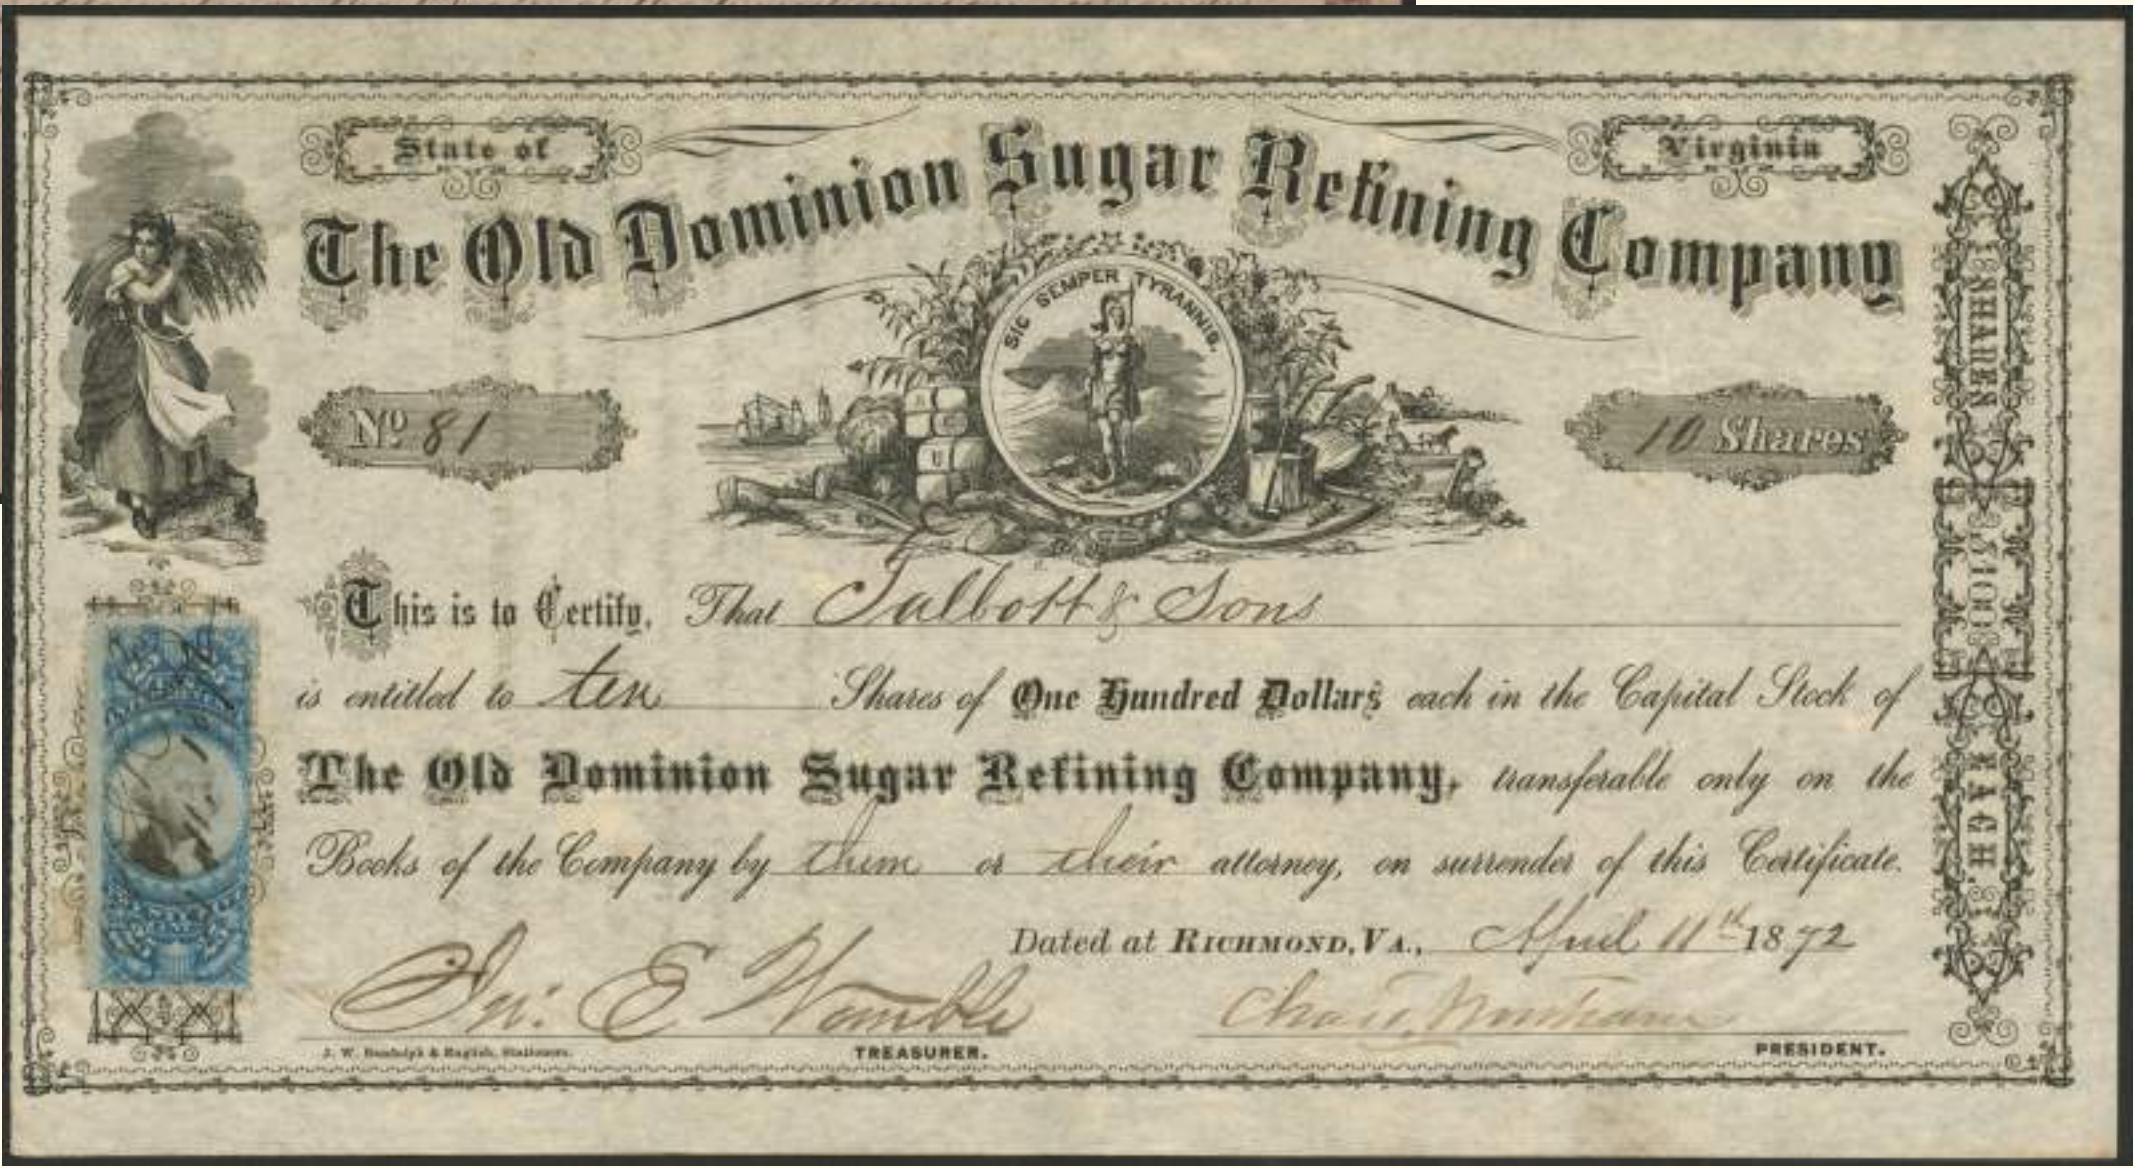 State of
Virginia
The Old Dominion Sugar Refining Company
SIC SEMPER TYRANNIS.
No 81
10 Shares
This is to Certify, That Talbott & Sons
is entitled to ten Shares of One Hundred Dollars each in the Capital Stock of
The Old Dominion Sugar Refining Company, transferable only on the
Books of the Company by them or their attorney, on surrender of this Certificate.
Dated at RICHMOND, VA., April 11th 1872
Jno. E Womble
J. W. Randolph & English, Stationers.
TREASURER.
PRESIDENT.
SHARES
$100
EACH.